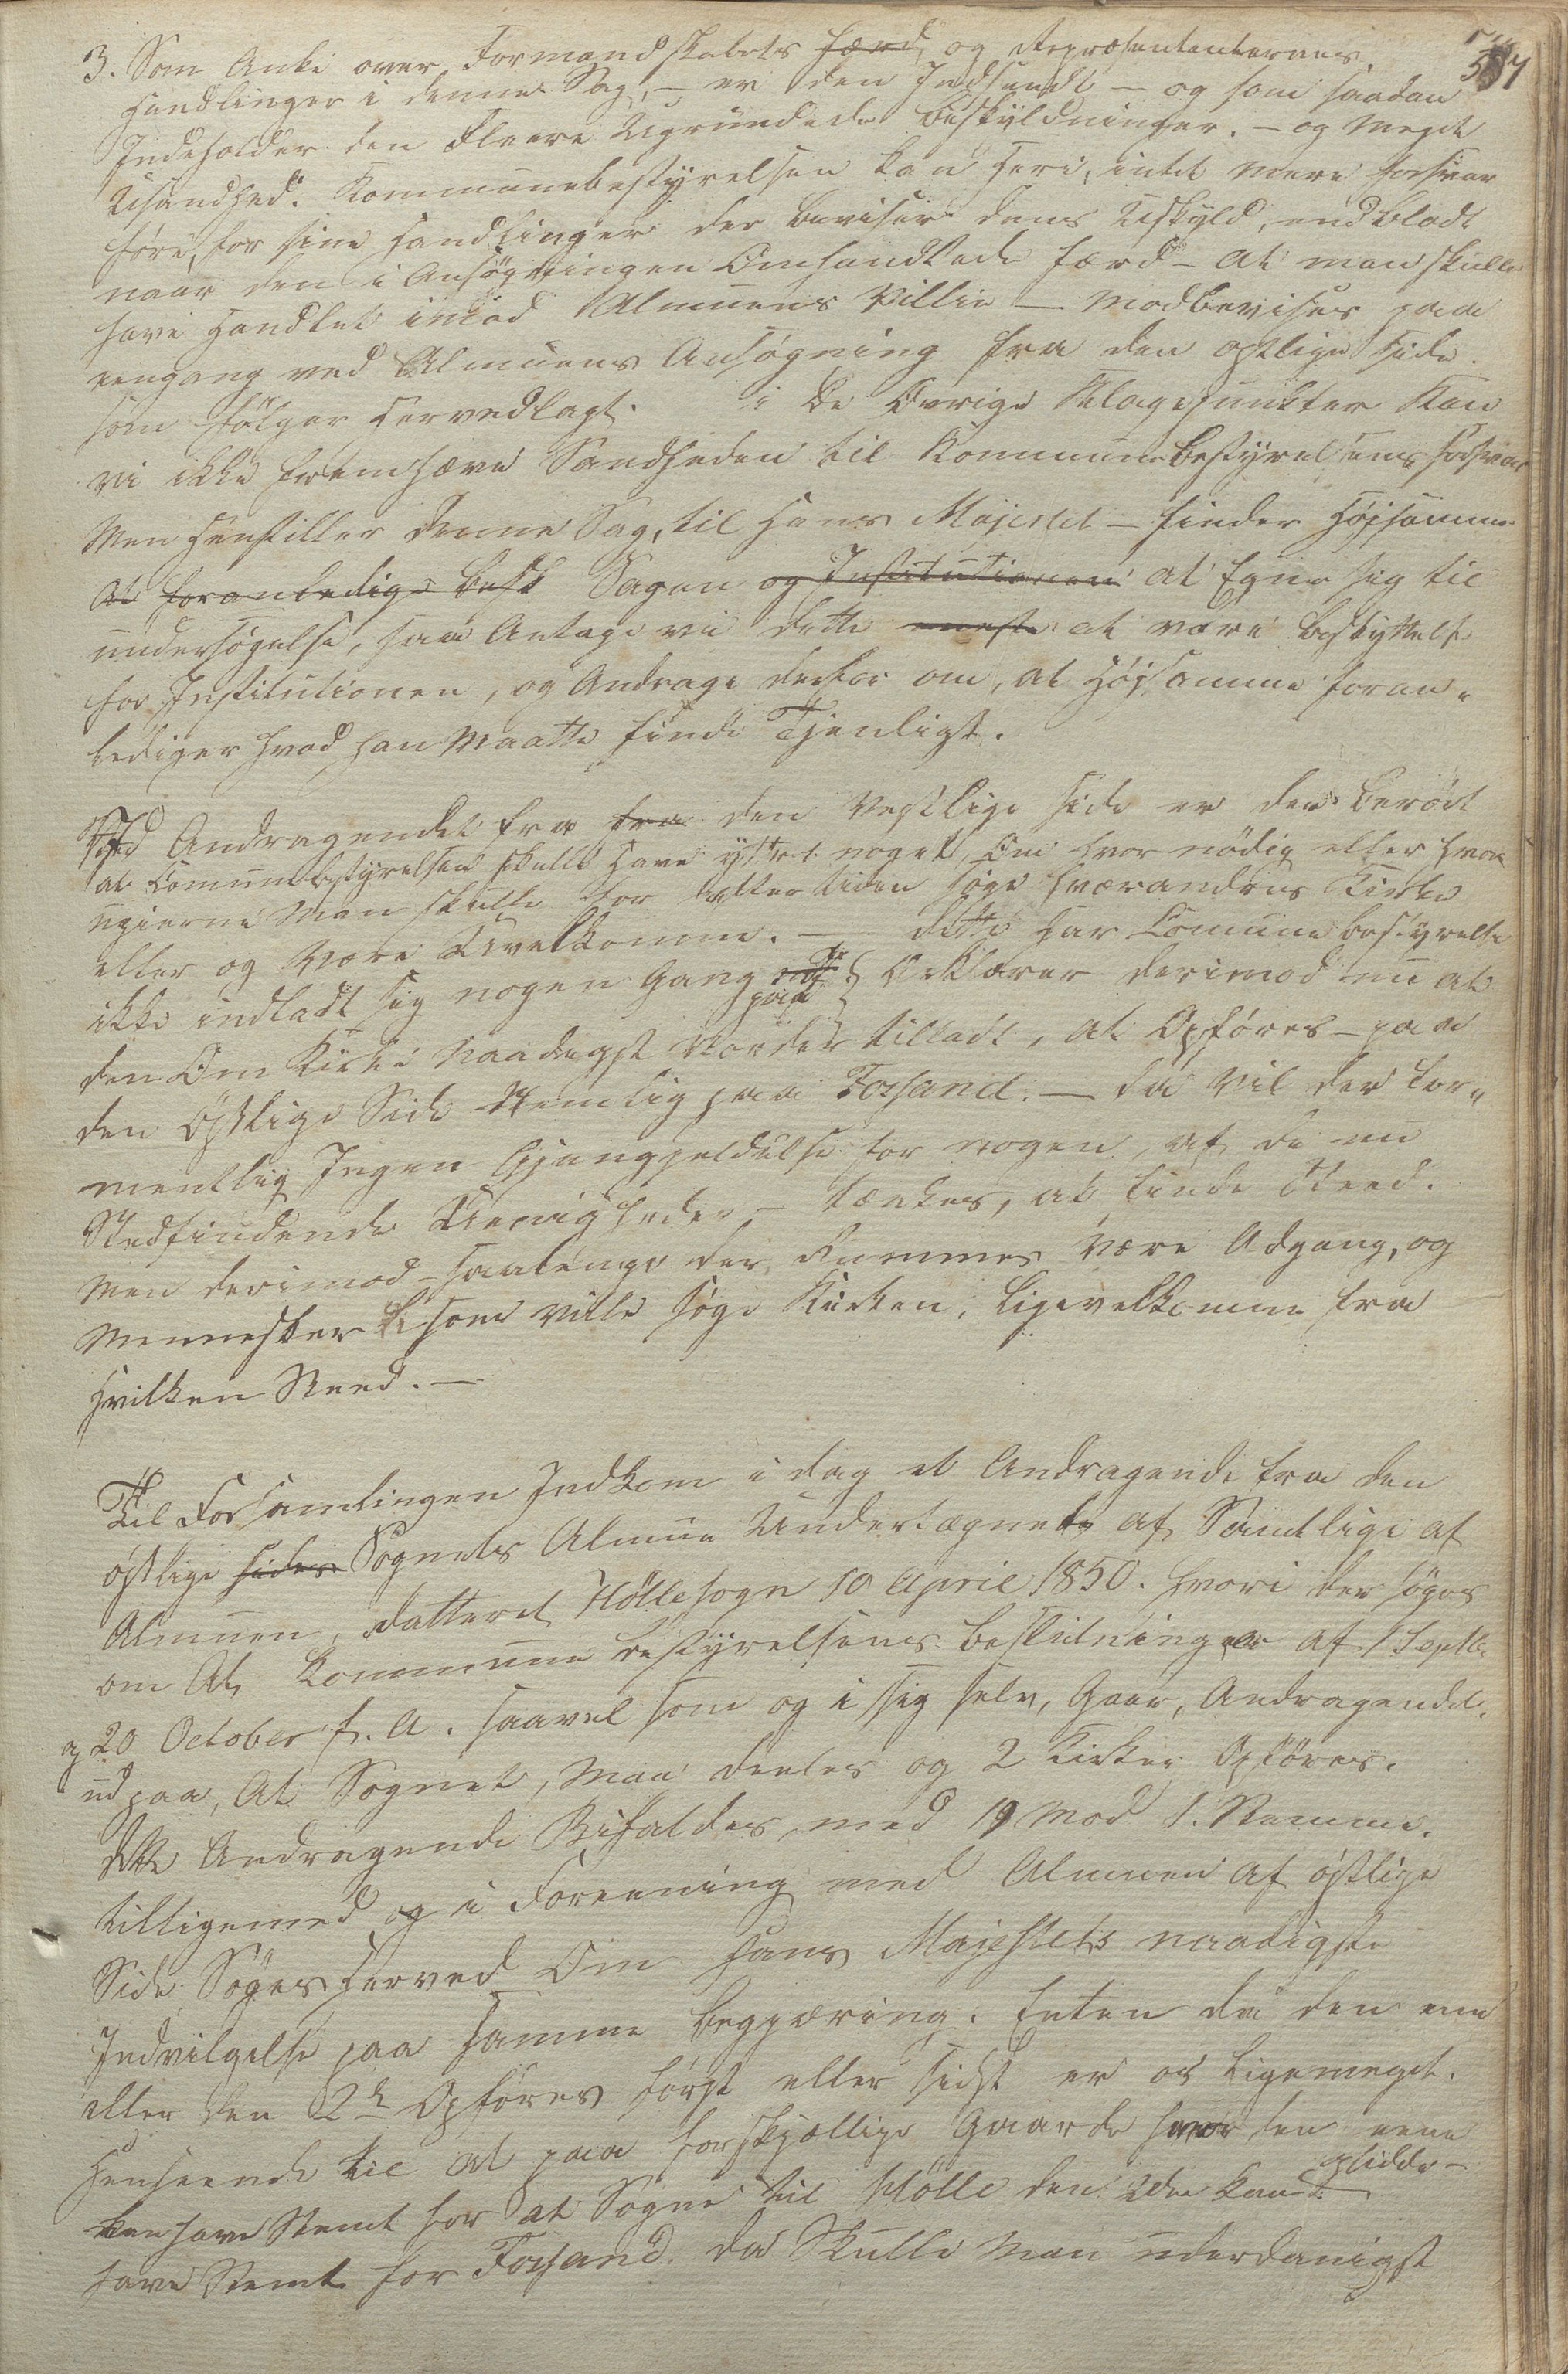 57
3. Som Anke over Formandskabets færd, og Repræsentanternes
Handlinger i denne Sag, — er den Indsendt — og som saadan
Indeholder den Fleere Ugrundede Beskyldninger. — og Meget
Usandhed. Kommunebestyrelsen kan heri, intet mere forsvar
føre, for sine Handlinger der beviser dens Uskyld, end blodt
naar den i Ansøgningen Omhandlede færd — at man skulle
have Handlet imod Almuens Villie — modbevises paa
eengang ved Almuens Ansøgning fra den østlige side
som følger hervedlagt. i De Øvrige Klagepunkter Kan
vi ikke fremhæve Sandheden til Kommunebestyrelsens forsvar
Men henstiller denne Sag, til Hans Majestet — finder Høisamme
at foranledige Sagen og Institutionen at Egne sig til
undersøgelse, saa Antage vi dette at være beskyttelse
for Institutionen, og Andrage derfor om, at Høisamme foran-
lediger hvad han Maatte finde Tjenligst.
Ved Andragendet fra fra den Vestlige side er det berørt
at Comunebestyrelsen skulle have yttret noget, Om hvor nødig eller hvor
ugierne Man skulle for eftertiden søge hverandres Kirke
eller og Være Uvelkomne. — dette har Comunebestyrelse
ikke indladt sig nogen Gang paa Erklærer derimod nu at
den Om Kirke Naadigst Vorder tilladt, at Opføres — paa
den Østlige Side Nemlig paa Forsand. — da vil der for-
mentlig Ingen Gjengjeldelse for nogen, af de nu
Stedfindende Uenigheder — tænkes, at finde Steed.
Men derimod — saalenge der Rummes Være Adgang, og
Mennesker som ville søge Kirken, ligevelkomne fra
Hvilken Steed. —
Til Forsamlingen Indkom i dag et Andragende fra den
østlige sides Sognets Almue Undertegnede af Samtlige af
Almuen, datteret Hölle sogn 10 April 1850. hvori der søges
om At, Kommunebestyrelsens beslutninger af 1 Septb.
og 20 October f. A. saavel som og i sig selv, Gaar, Andragendet
ud paa, At Sognet, Maa deeles og 2 Kirker Opføres.
dette Andragende Bifaldes med 19 Mod 1. Stemme.
tilligemed og i Foreening med Almuen af østlige
Side Søges herved Om Hans Majestets naadigste
Indvilgelse paa samme begjæring. Enten da den ene
eller den 2den Opføres først eller sidst er os ligemeget.
Henseende til at paa forskjællige Gaarde hvor den eene
kan have Stemt for at Sogne til Hölle den 2den Kan
have Stemt for Forsand. da Skulle Man underdanigst